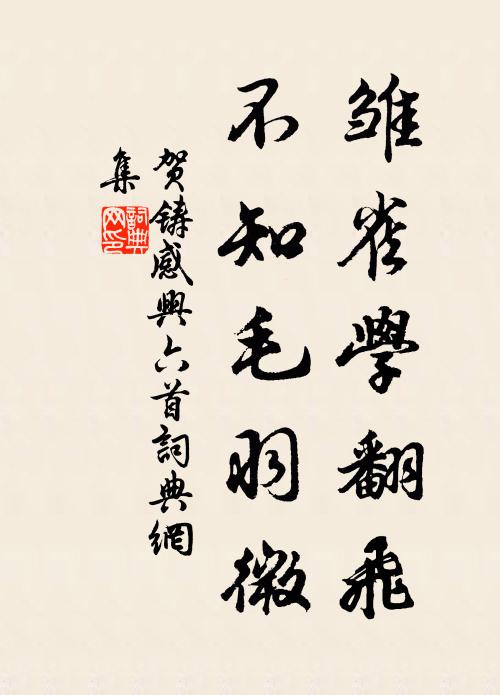 雏雀學翻飛
不知毛羽微
贺鑄感興六首詞典網
集
詞典
网印